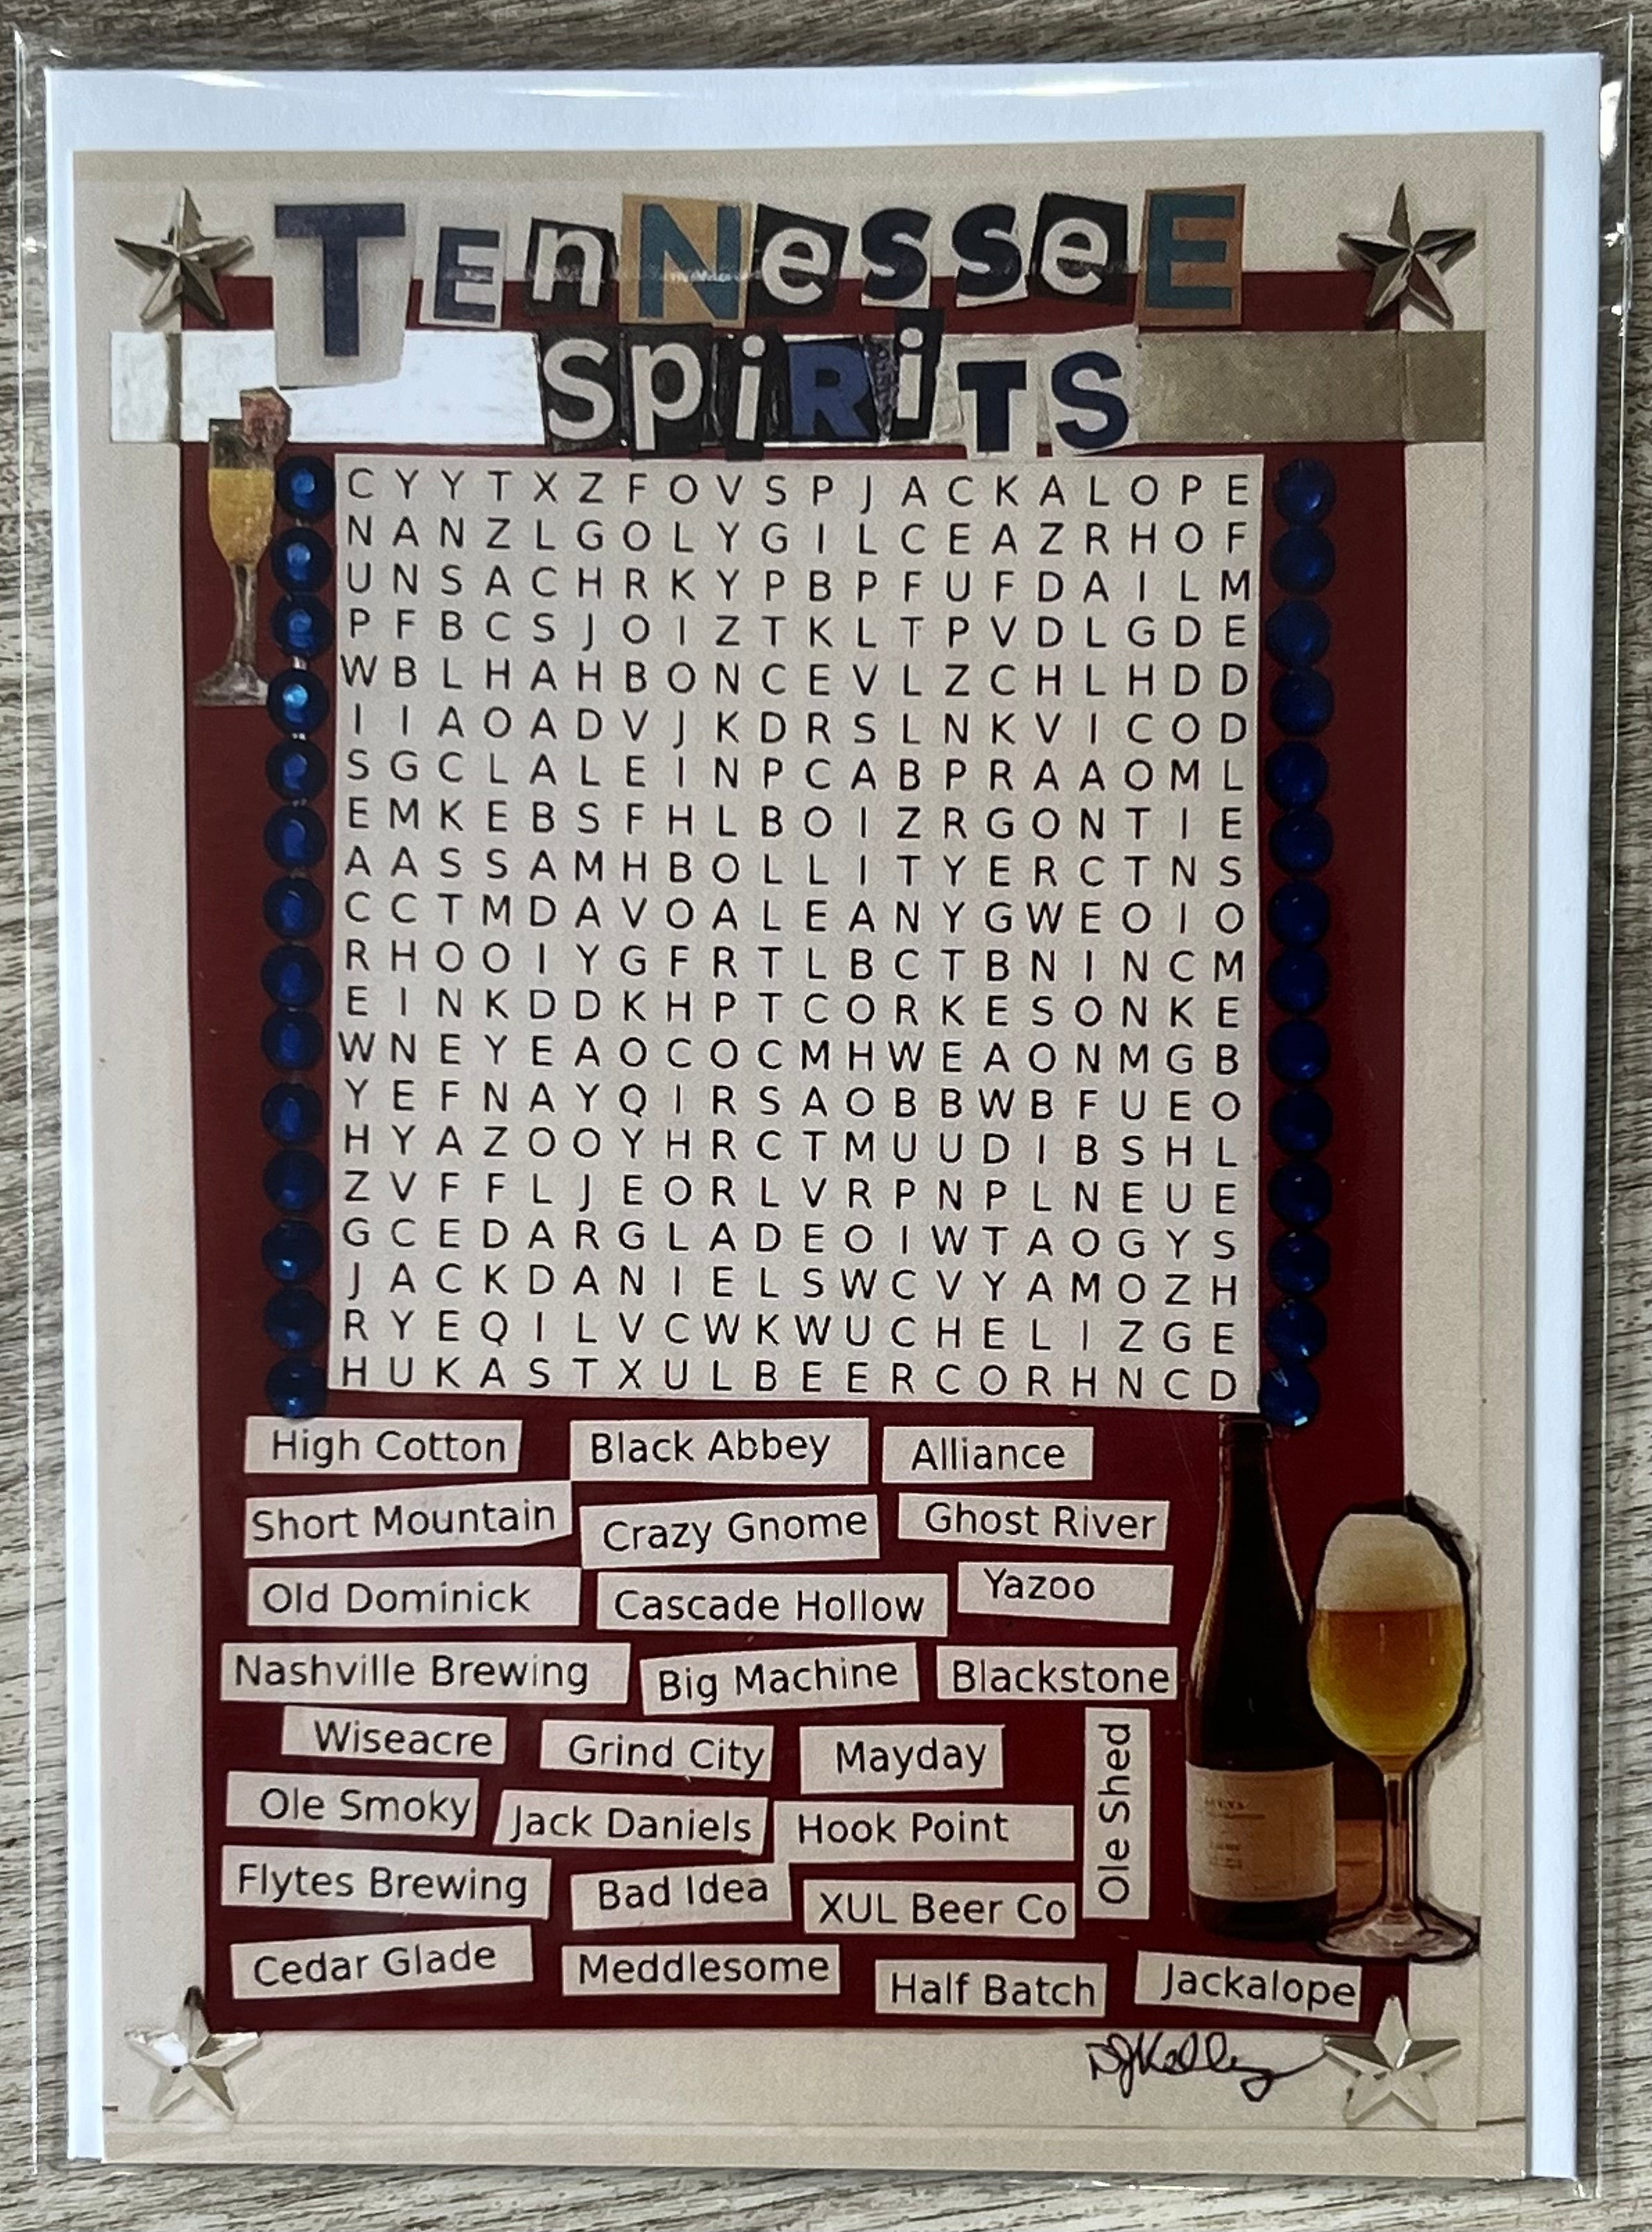 TEnNesseE
SpiRiTS
C Y Y T X Z F O V S P J A C K A L O P E
N A N Z L G O L Y G I L C E A Z R H O F
U N S A C H R K Y P B P F U F D A I L M
P F B C S J O I Z T K L T P V D L G D E
W B L H A H B O N C E V L Z C H L H D D
I I A O A D V J K D R S L N K V I C O D
S G C L A L E I N P C A B P R A A O M L
E M K E B S F H L B O I Z R G O N T I E
A A S S A M H B O L L I T Y E R C T N S
C C T M D A V O A L E A N Y G W E O I O
R H O O I Y G F R T L B C T B N I N C M
E I N K D D K H P T C O R K E S O N K E
W N E Y E A O C O C M H W E A O N M G B
Y E F N A Y Q I R S A O B B W B F U E O
H Y A Z O O Y H R C T M U U D I B S H L
Z V F F L J E O R L V R P N P L N E U E
G C E D A R G L A D E O I W T A O G Y S
J A C K D A N I E L S W C V Y A M O Z H
R Y E Q I L V C W K W U C H E L I Z G E
H U K A S T X U L B E E R C O R H N C D
High Cotton Black Abbey Alliance
Short Mountain Crazy Gnome Ghost River
Old Dominick Cascade Hollow Yazoo
Nashville Brewing Big Machine Blackstone
Wiseacre Grind City Mayday
Ole Shed
Ole Smoky Jack Daniels Hook Point
Flytes Brewing Bad Idea XUL Beer Co
Cedar Glade Meddlesome Half Batch Jackalope
DJKelley